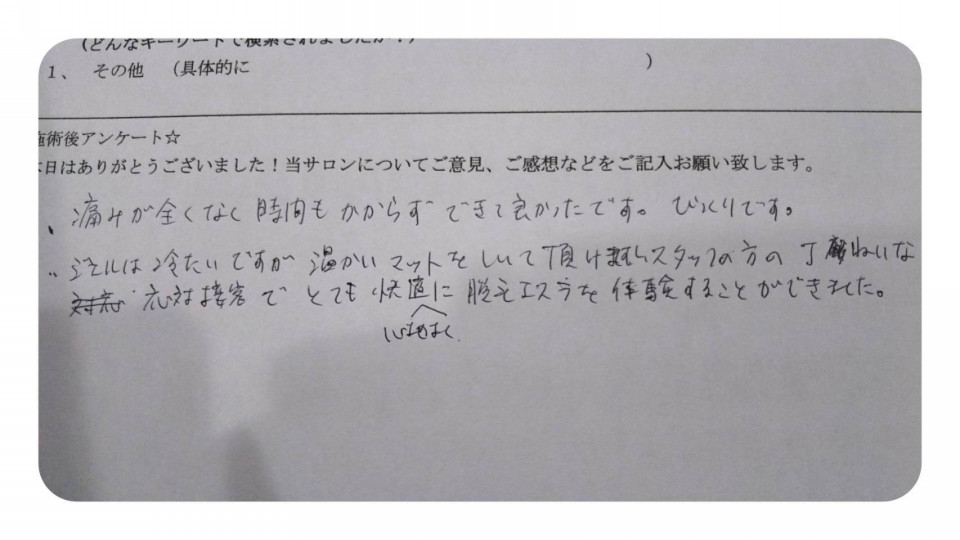 (どんなキーワードで検索されましたか?)
1、 その他 (具体的に )
施術後アンケート☆
本日はありがとうございました！当サロンについてご意見、ご感想などをご記入お願い致します。
、痛みが全くなく時間もかからずできて良かったです。びっくりです。
ジェルは冷たいですが温かいマットをしいて頂けますしスタッフの方の丁ねいな
対応 応対接客でとても快適に脱毛エステを体験することができました。
心地よく